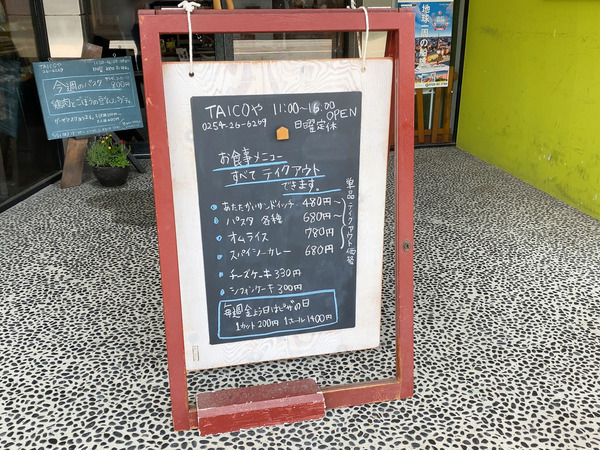 TAICOや 11:00〜16:00
OPEN
0254-26-6269 日曜定休
お食事メニュー
すべて テイクアウト
できます。
あたたかいサンドイッチ 480円〜
パスタ 各種 680円〜
オムライス 780円
スパイシーカレー 680円
単品テイクアウト価格
チーズケーキ 330円
シフォンケーキ 300円
毎週金よう日はピザの日
1カット200円 1ホール1400円
TAICOや
今週のパスタ
800円
鶏肉とごぼうの
地球一周の船旅